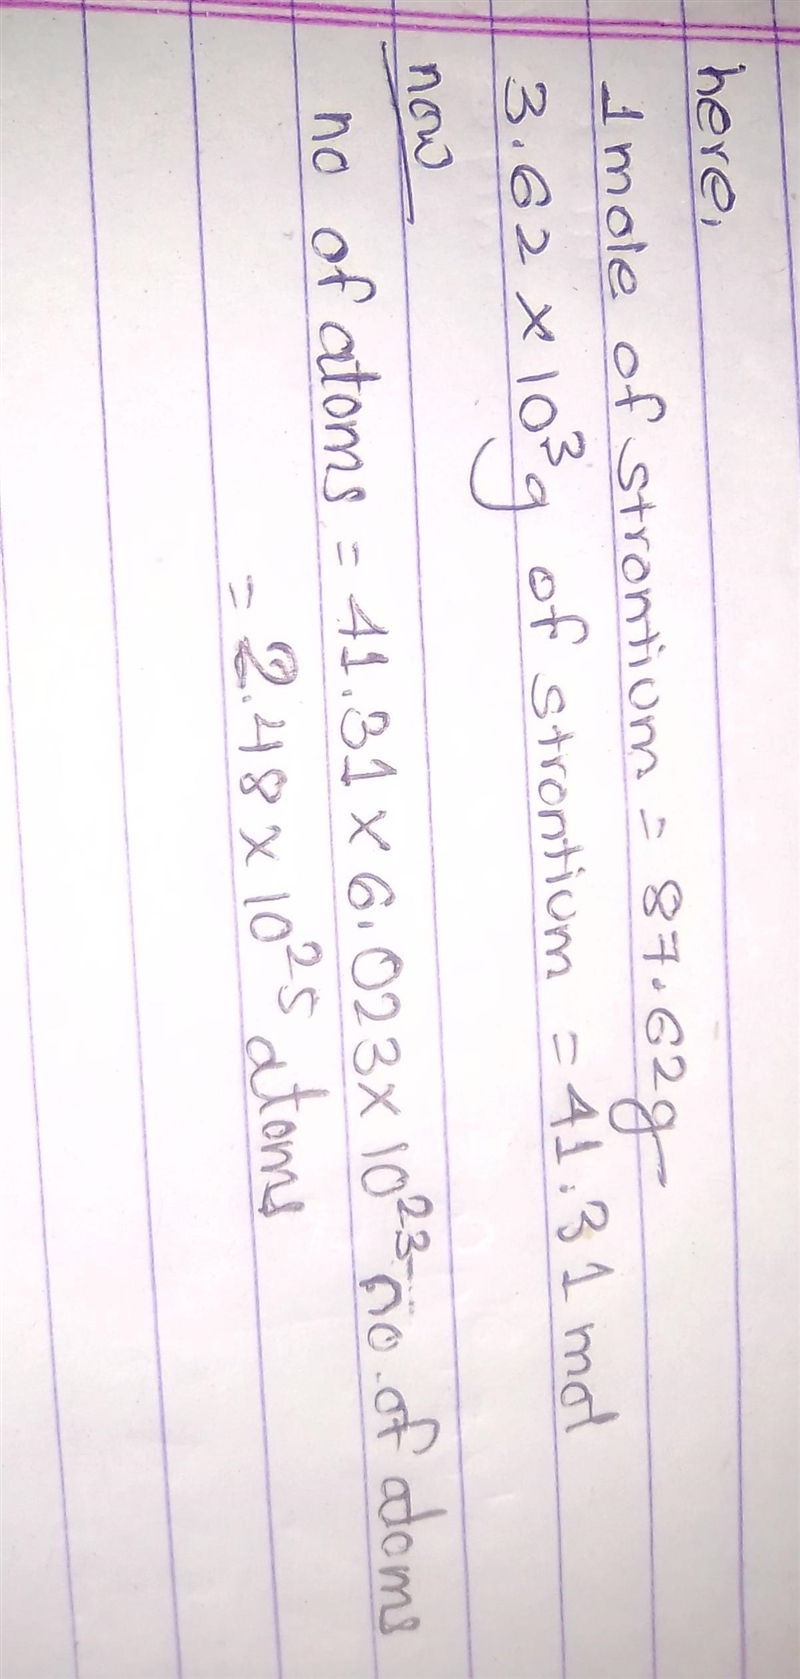 here,
1 mole of strontium = 87.62g
3.62 × 10³g of strontium = 41.31 mol
now
no of atoms = 41.31 × 6.023 × 10²³ no. of atoms
= 2.48 × 10²⁵ atoms